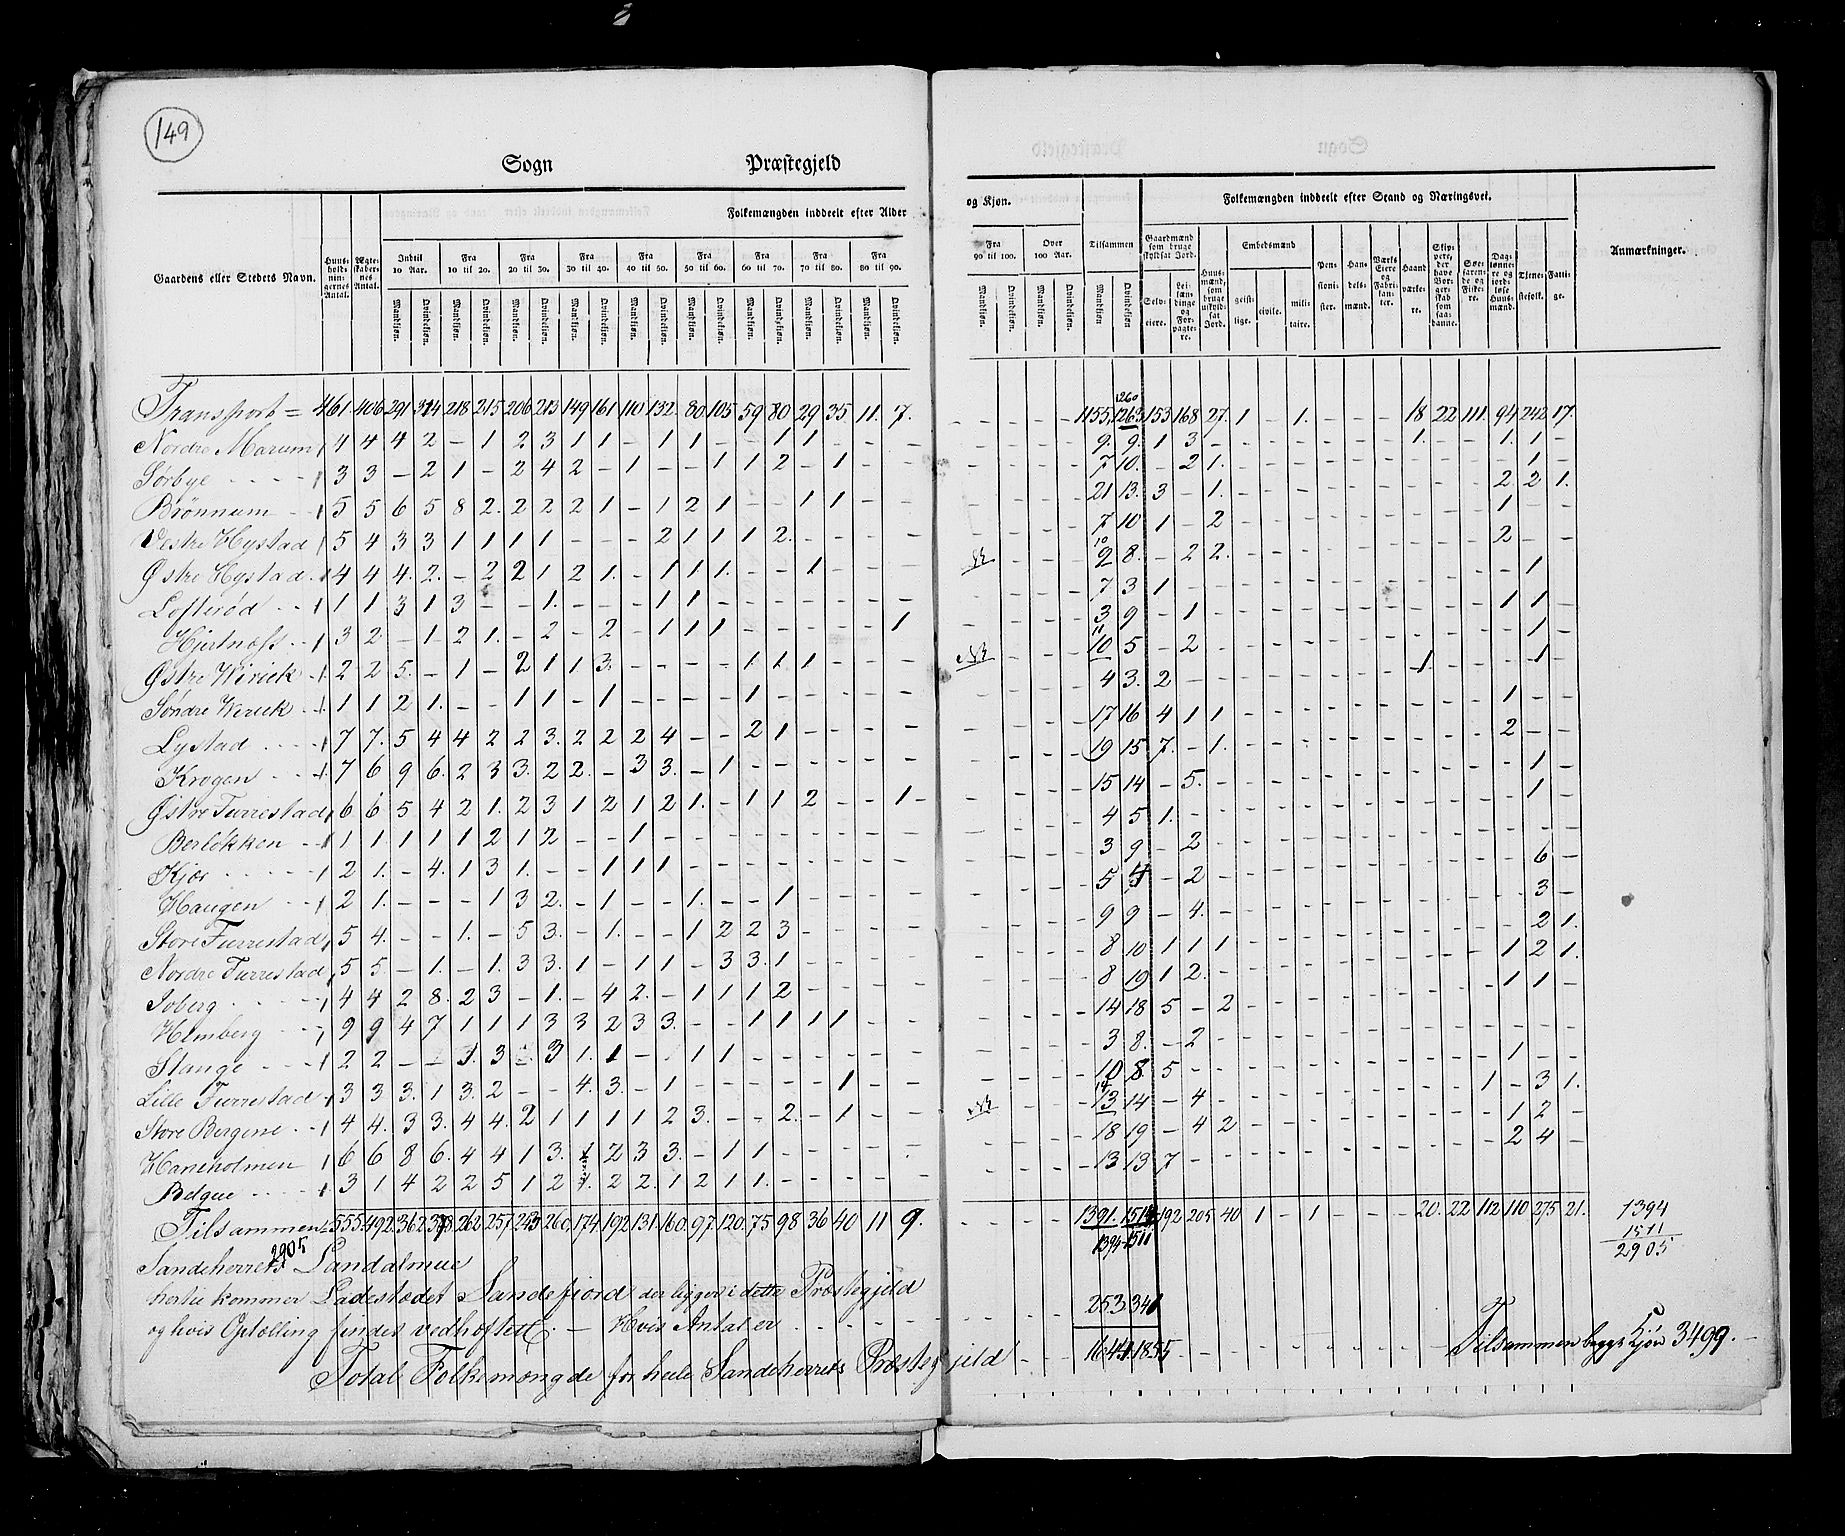 149
Sogn Præstegjeld
Gaardens eller Stedets Navn. Huusholdningernes Antal. Ægteskabernes Antal. Folkemængden inddeelt efter Alder og Kjøn. Tilsammen Folkemængden inddeelt efter Stand og Næringsvei. Anmærkninger.
Indtil 10 Aar. Fra 10 til 20. Fra 20 til 30. Fra 30 til 40. Fra 40 til 50. Fra 50 til 60. Fra 60 til 70. Fra 70 til 80. Fra 80 til 90. Fra 90 til 100. Over 100 Aar.
Mandkjøn. Qvindekjøn.
Gaardmænd som bruge skyldsat Jord. Selveiere. Leilændinge og Forpagtere. Huusmænd, som bruge uskyldsat Jord. Embedsmænd geistlige. civile. militaire. Pensionister. Handelsmænd. Værks Eiere og Fabrikanter. Haandværkere. Skippere, der have Borgerskab som saadanne. Søefarende og Fiskere. Dagslønnere og jordløse Huusmænd. Tjenestefolk. Fattige.
Transport = 461 406 291 314 218 215 206 213 149 161 110 132 80 105 59 80 29 35 11 7. 1155 1263 1260 153 168 27 1 - 1. - - - 18 22 111 94 242 17.
Nordre Marum 4 4 4 2 - 1 2 3 1 1 - 1 1 - - 1 1 - - - 9. 9. 1 3 - - - - - - - 1. - - 1. 1. -
Sørbye 3 3 - 2 1 - 2 4 2 - 1 - - 1 1 2 - 1 - - 7 10. - 2 1. - - - - - - - - - - 1 -
Brønnum 5 5 6 5 8 2. 2 2 2 1 - 1 2 1 - - 1 1 - - 21 13. 3 - 1. - - - - - - - - - 2 2 1.
Vestre Hystad 5 4 3 3 1 1 1 1 - - - 2 1 1 1 2. - - - - 7 10 1 - 2 - - - - - - - - - 1 - -
Østre Hystad 4 4 4. 2. - 2 2 1 2 1. - 1 1 1. - - 1 - - - 10 9 8. - 2 2. - - - - - - - - - 2 - -
Lofterød 1 1 3 1 3 - - 1. - - - 1 1 - - - - - - - 7 3 1 - - - - - - - - - - - - 1 -
Hjertnæss 3 2 - 1 2 1. - 2 - 2 - 1 1 1 - - - - - 1 3 9 - 1 - - - - - - - - - - 1 1 -
Østre Wirick 2 2 5. - 1 - 2 1 1 3. - - - - 1 1 1 - - - 11 10 5 - 2 - - - - - - - - - - 1 -
Søndre Wirick 1 1 2 1. - - 1 1 - 1 - - - - 1 - - - - - 4 3. 2 - - - - - - - - 1. - - - 1 -
Lystad 7 7. 5 4 4 2 2 3. 2 2 2 4 - - 2 1 - - - - 17 16 4 1 1 - - - - - - - - - 1 - -
Krogen 7 6 9 6. 2 3 3. 2 2. - 3 3. - 1 - - - - - - 19 15 7. - 1. - - - - - - - - - 2 - -
Østre Furrestad 6 6 5 4 2 1. 2 3 1 2 1 2 1. - 1 1 2 - - 1 - 15 14 - 5. - - - - - - - - - - - 1 -
Berløkken 1 1 1 1 1 2 1 2 - - 1 - - - - - - - - - 4 5 1. - - - - - - - - - - - - 1 -
Kjær 2 1. - 4. 1 3 1. - - 1 1 1 - - - - - - - - 3 9 - 2 - - - - - - - - - - - - -
Haugen 2 1. - - - 1 3 2. - 1 - - 1. - - 1 - - - - 5 4 - 2 - - - - - - - - - - - 6 -
Store Furrestad 5 4. - - 1. - 5 3. - 1. - - 1 2 2 3 - - - - 9 9 - 4. - - - - - - - - - - - 3 -
Nordre Furrestad 5 5 - 1. - 1. 3 3. 1 - 1 1 - 3 3. 1 - - - - 8 10 1 1 1 - - - - - - - - - - 2 1.
Soberg 4 4 2 8. 2 3 - 1. - 4 2. - 1 1 1 2 - - - - 8 19 1 2. - - - - - - - - - - 1 2 1.
Hemberg 9 9 4 7 1 1 1 3 3 2 3 3. - - 1 1 1 1 - - 14 18 5 - 2 - - - - - - - - - 1 1 -
Stange 2 2 - - 3. 3 - 3 1. 1 - - 1 1 - - - - - - 3 8. - 2 - - - - - - - - - - - - -
Lille Furrestad 3 3 3. 1 3. 2 - - 4. 3. - 1 - - - - - 1 - - 10 8. 5 - - - - - - - - - - - 1 - -
Store Bergene 4 4. 3 3. 4 4. 2 1 1 1 1 2 3. - - 2. - 1 - - 14 13 14 - 4 - - - - - - - - - 1 - 3 1.
Haneholmen 6 6 8 6. 4 4 1 3. 1 2 3 3. - 1 1 - - - - - 18 19 - 4 2 - - - - - - - - - 1 2 -
Belgue 3 1 4 2 2 5 1 2 1. 2 2. 1 2 1 1. - - - - - 13 13 7 - - - - - - - - - - - 2 4 -
Tilsammen 555 492 362 378 262 257 243 260 174 192 131 160 97 120 75 98 36 40 11 9. 1391. 1514 192 205 40 1 - 1 - - - 20. 22 112 110 275 21. 1394
1394 1511 1511
2905
2905
Sandeherrets Landalmue
hertil kommer Ladestædet Sandefiord der ligger i dette Præstegjeld 253 341
og hvis Optælling findes vedhæftet. - Hvis Antal er
Total Folkemængde for hele Sandeherrets Præstegjeld - - 1644 1855 Tilsammen begge Kjøn 3499.